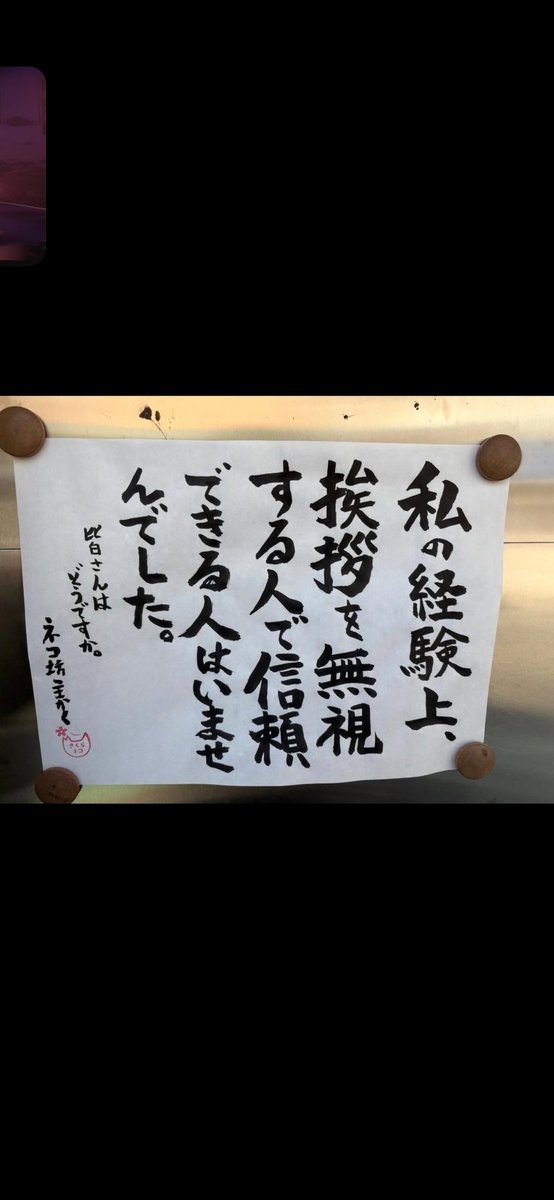 私の経験上、
挨拶を無視
する人で信頼
できる人はいませ
んでした。
皆さんは
どうですか。
ネコ坊主かく
さくら
ネコ